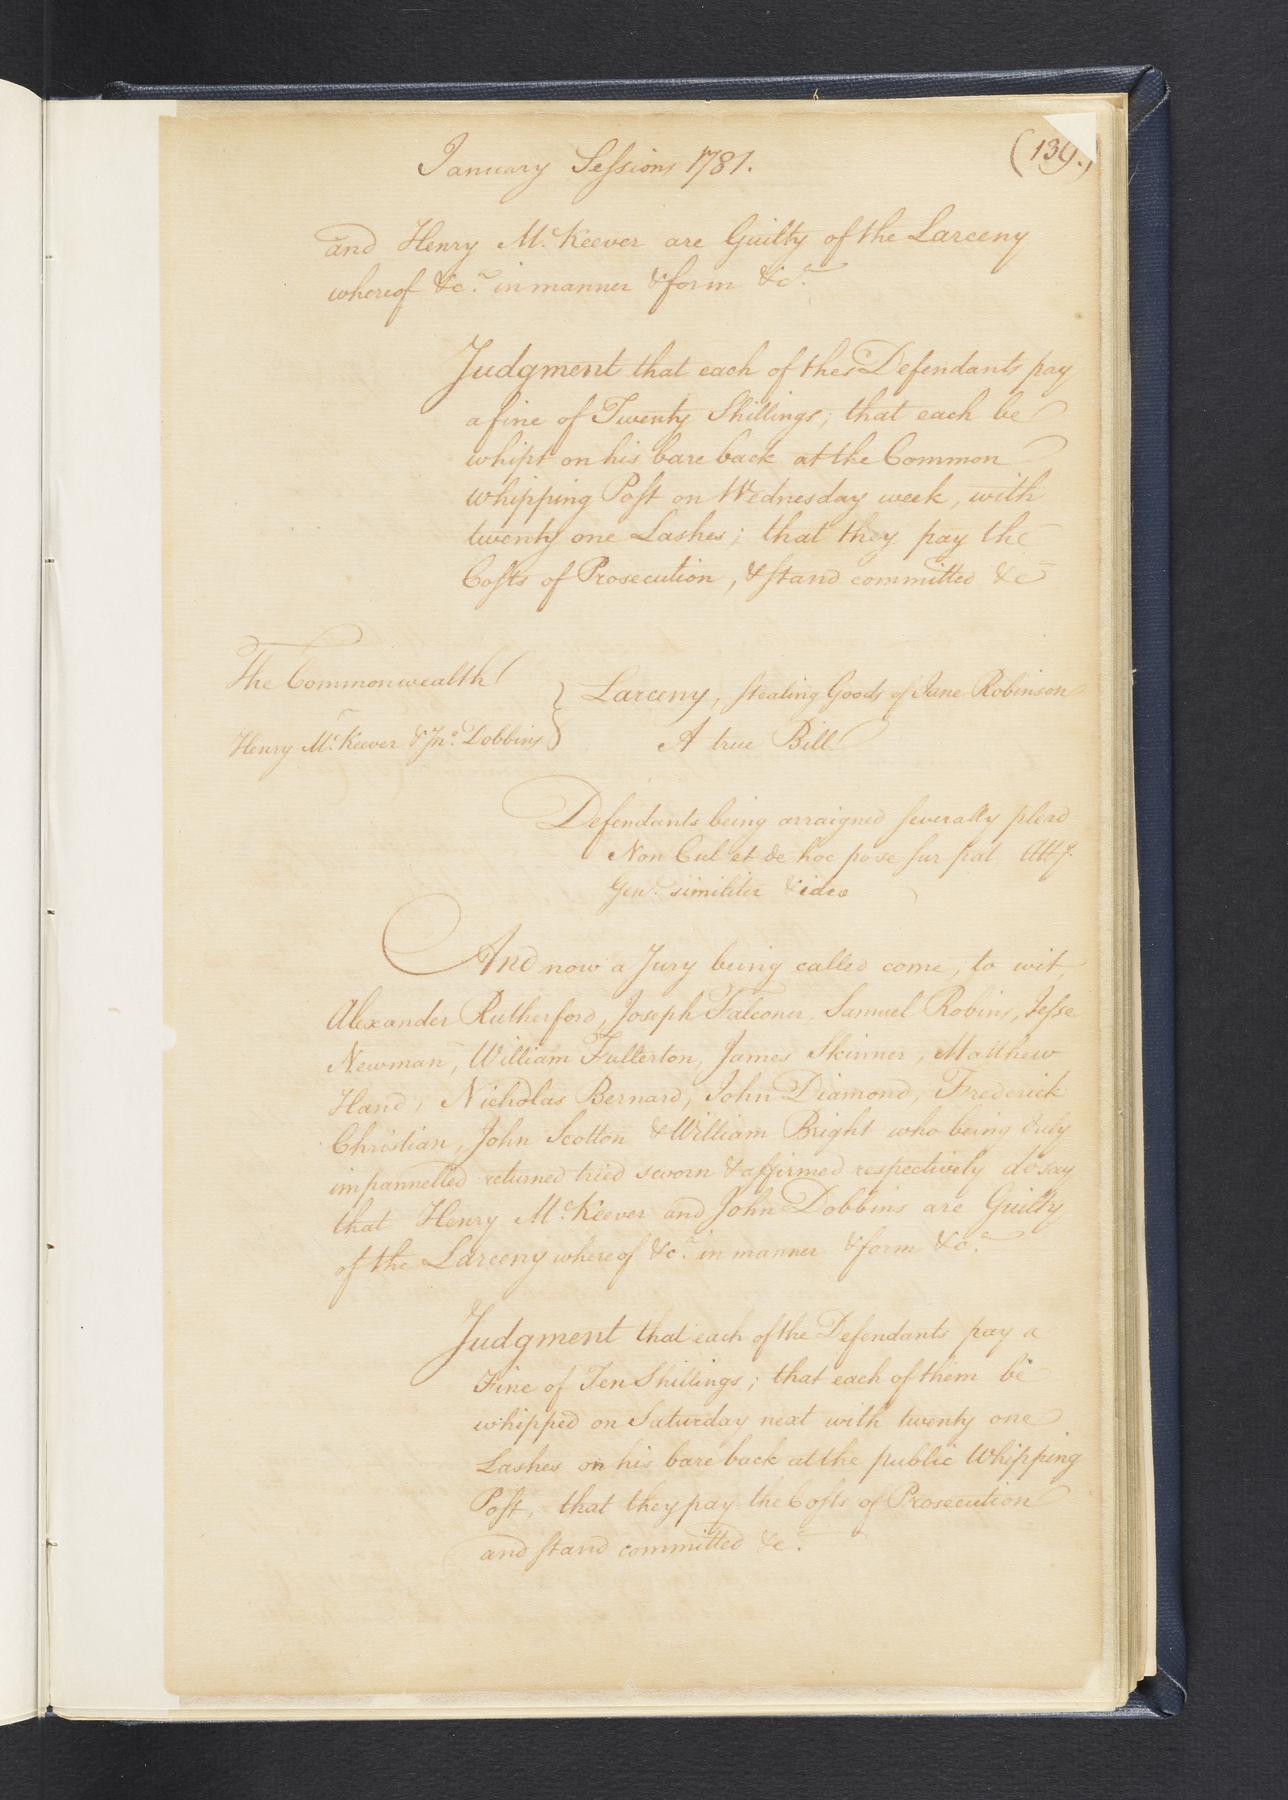 January Sessions 1781.
(139.)
and Henry Mc.Keever are Guilty of the Larceny
whereof &ca. in manner & form &ca.
Judgment that each of thes Defendants pay
a fine of Twenty Shillings; that each be
whipt on his bare back at the Common
whipping Post on Wednesday week, with
twenty one Lashes; that they pay the
Costs of Prosecution, & stand committed &c
The Commonwealth
Larceny, stealing Goods of Jane Robinson
Henry Mc.Keever & Jno. Dobbins
A true Bill
Defendants being arraigned severally plead
Non Cul et de hoc po se sur pat Atty.
Genl. similiter & ideo
And now a Jury being called come, to wit,
Alexander Rutherford, Joseph Falconer, Samuel Robins, Jesse
Newman, William Fullerton, James Skinner, Matthew
Hand, Nicholas Bernard, John Diamond, Frederick
Christian, John Scotton & William Bright who being duly
impannelled returned tried sworn & affirmed respectively do say
that Henry Mc.Keever and John Dobbins are Guilty
of the Larceny whereof &ca. in manner & form &ca.
Judgment that each of the Defendants pay a
Fine of Ten Shillings; that each of them be
whipped on Saturday next with twenty one
Lashes on his bare back at the public Whipping
Post, that they pay the Costs of Prosecution
and stand committed &c.